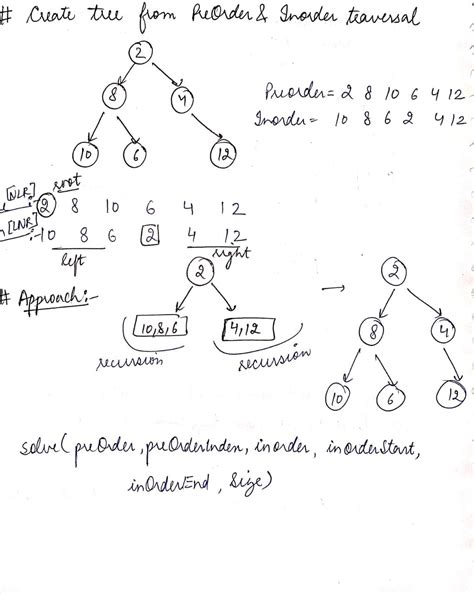 # Create tree from PreOrder & Inorder traversal
2
8 4
10 6 12
Preorder = 2 8 10 6 4 12
Inorder = 10 8 6 2 4 12
root
[NLR] 2 8 10 6 4 12
[LNR] :- 10 8 6 2 4 12
left right
# Approach :-
2
10,8,6 4,12
recursion recursion
→
2
8 4
10 6 12
solve( preOrder, preOrderIndex, inorder, inorderStart,
inOrderEnd, size)